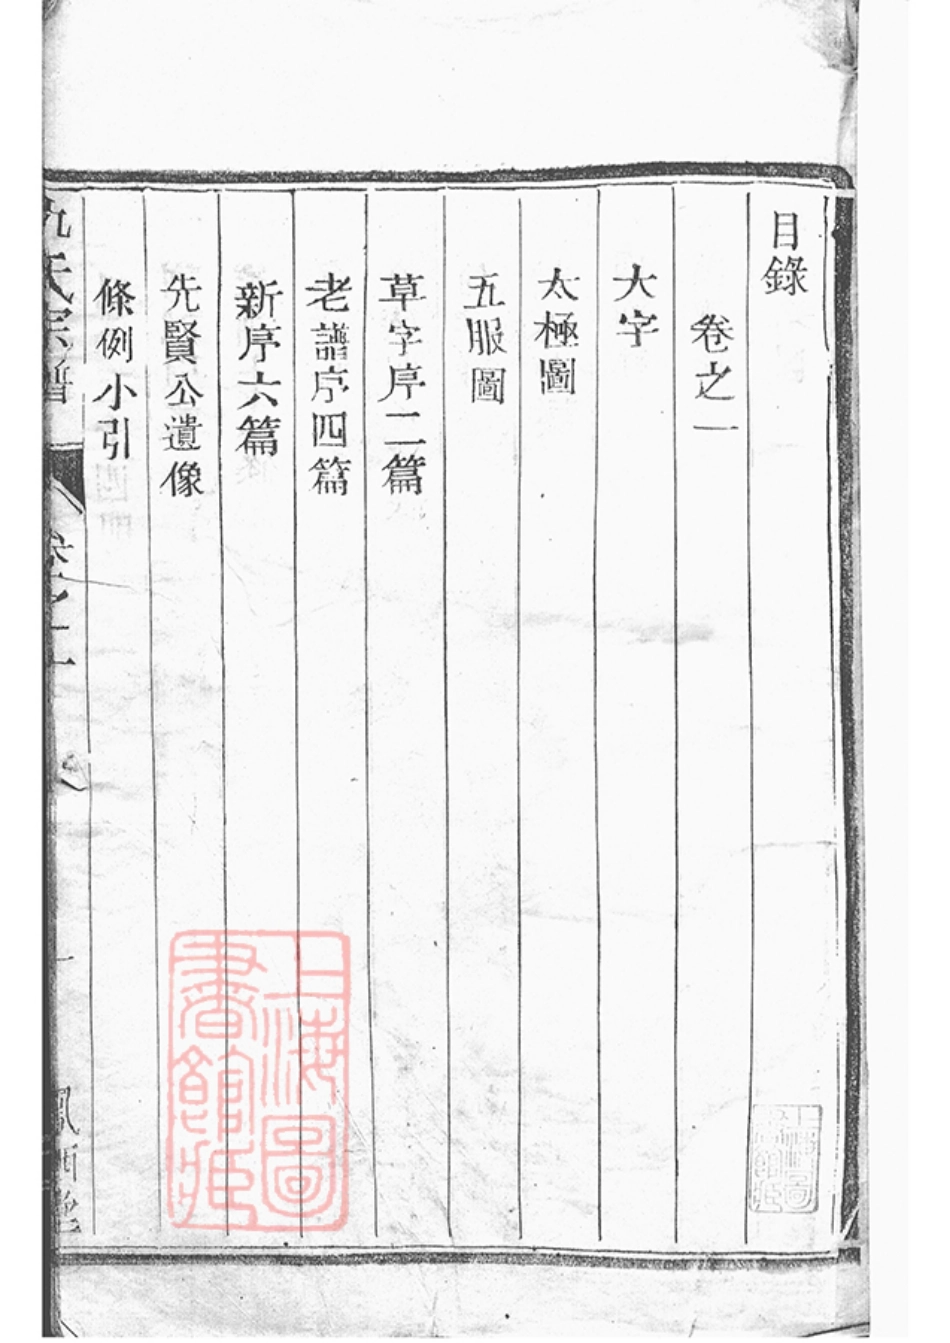 目錄
卷之一
大字
太極圖
五服圖
草字序二篇
老譜序四篇
新序六篇
先賢公遺像
條例小引
氏宗譜
卷之一
上海圖書館藏
上海圖書館藏